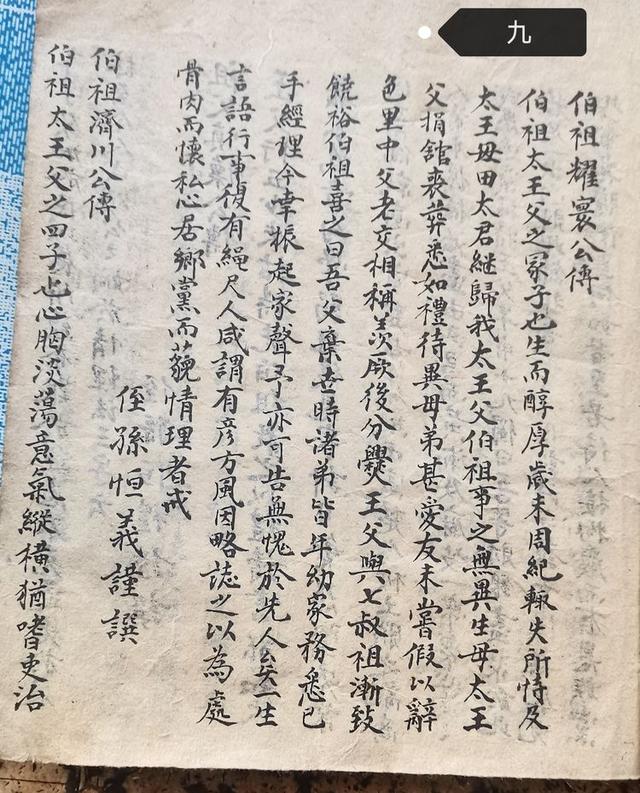 九
伯祖耀寰公傳
伯祖太王父之冢子也生而醇厚歲未周紀輒失所恃及
太王母田太君繼歸我太王父伯祖事之無異生母太王
父捐舘喪葬悉如禮待異母弟甚愛友未嘗假以辭
色里中父老交相稱羨厥後分爨王父與七叔祖漸致
饒裕伯祖喜之曰吾父棄世時諸弟皆年幼家務悉已
手經理今幸振起家聲予亦可告無愧於先人矣一生
言語行事復有繩尺人咸謂有彦方風因略誌之以為處
骨肉而懷私心居鄉黨而藐情理者戒
侄孫恒義謹譔
伯祖濟川公傳
伯祖太王父之四子也心胸淡蕩意氣縱橫猶嗜吏治